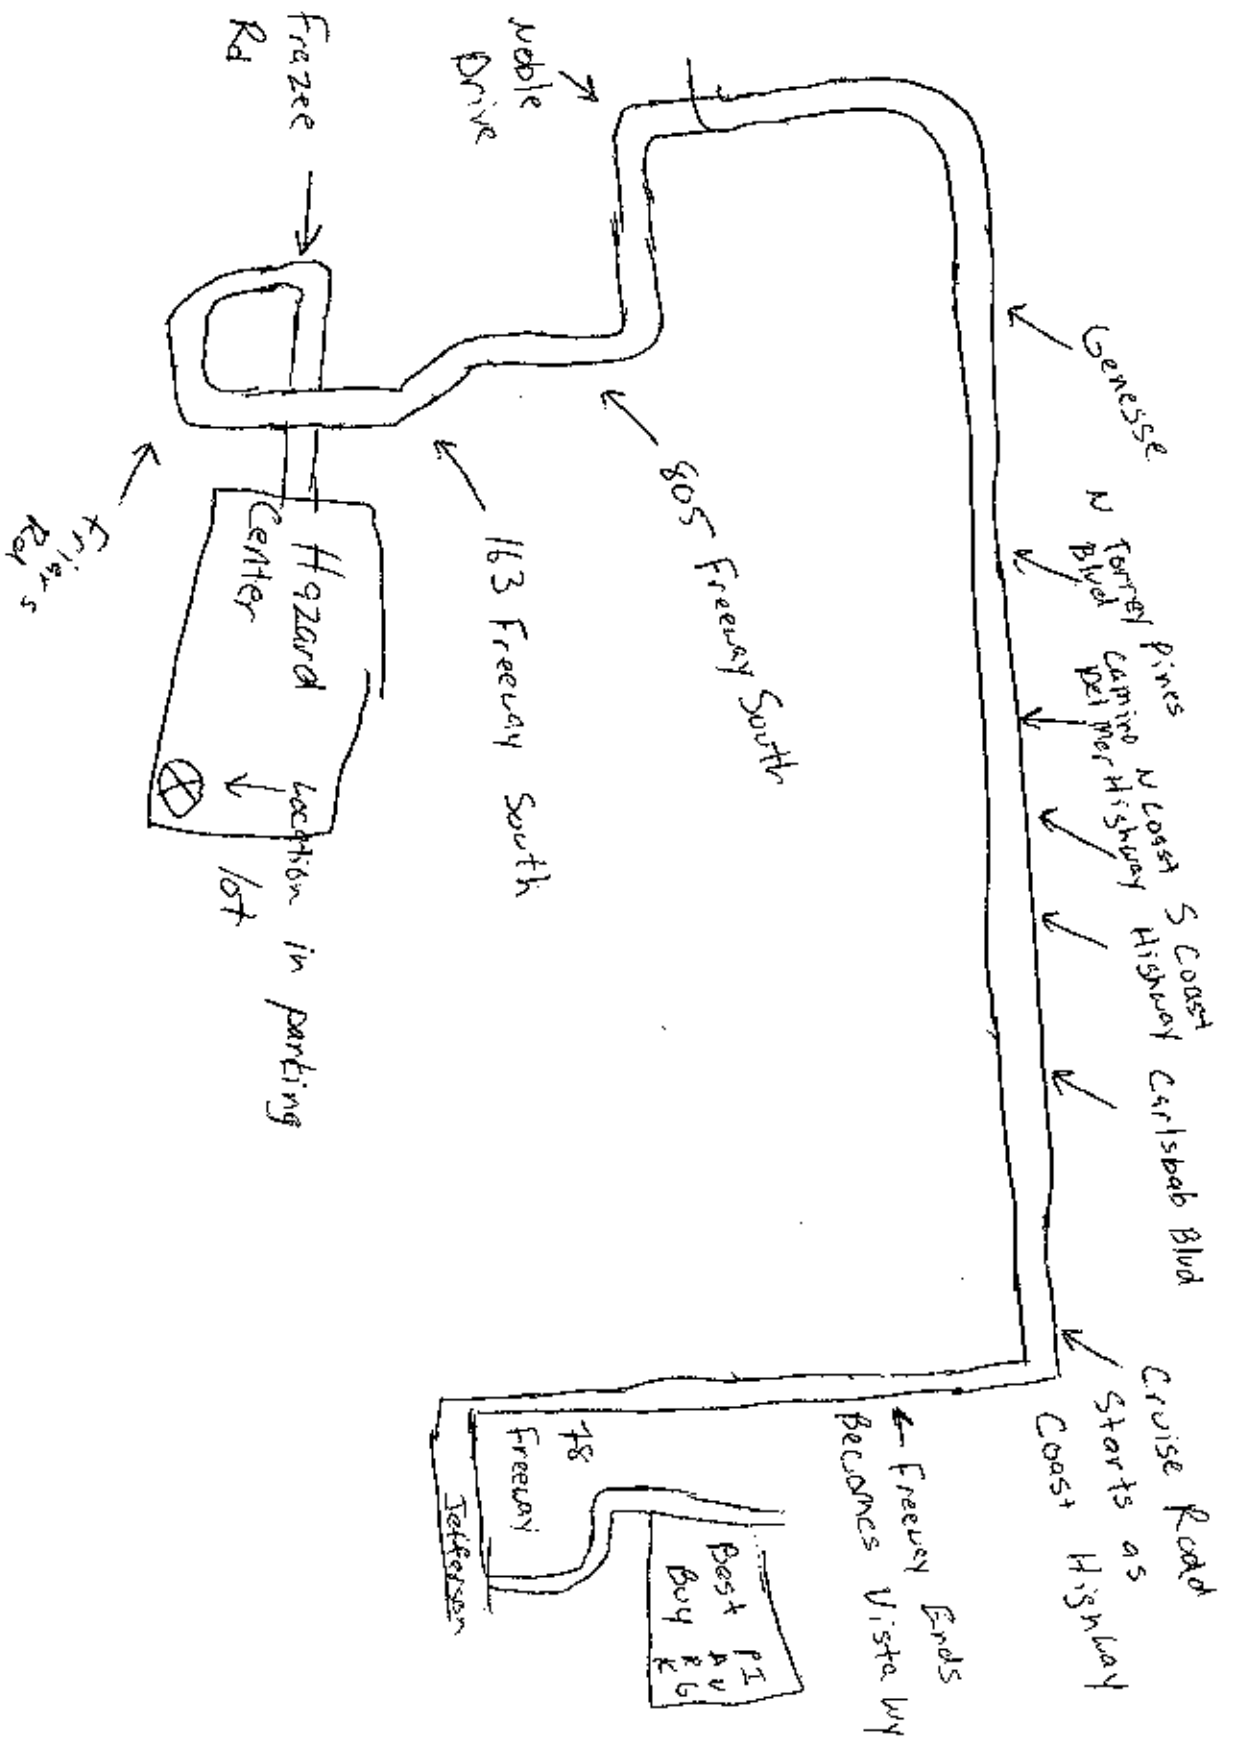 Cruise Road
Starts as
Coast Highway
← Freeway Ends
Becomes Vista Wy
Best
Buy
PARKING
78
Freeway
Jefferson
Carlsbab Blvd
S Coast
Highway
N Coast
Highway
Camino
Del Mar
N Torrey Pines
Blvd
Genesse
Noble
Drive
805 Freeway South
163 Freeway South
Friars
Rd
Frazee
Rd
Hazard
Center
Location in parking
lot